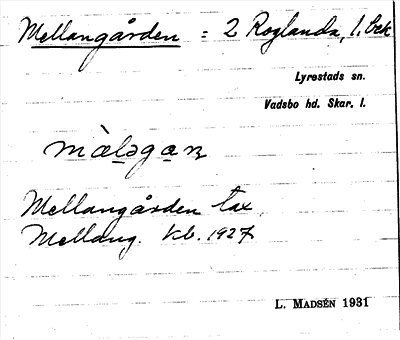 Mellangården = 2 Roglanda, 1. bek
Lyrestads sn.
Vadsbo hd. Skar. l.
màlǝgan
Mellangården tax.
Mellang. Kb. 1927
L. MADSÉN 1931